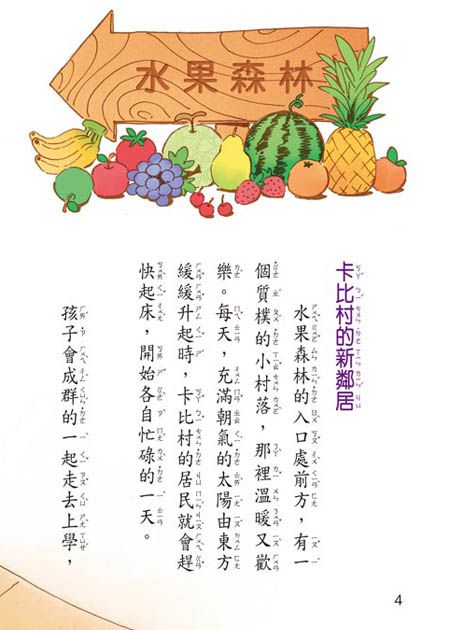 水果森林
卡比村的新鄰居
水果森林的入口處前方，有一
個質樸的小村落，那裡溫暖又歡
樂。每天，充滿朝氣的太陽由東方
緩緩升起時，卡比村的居民就會趕
快起床，開始各自忙碌的一天。
孩子會成群的一起走去上學，
4